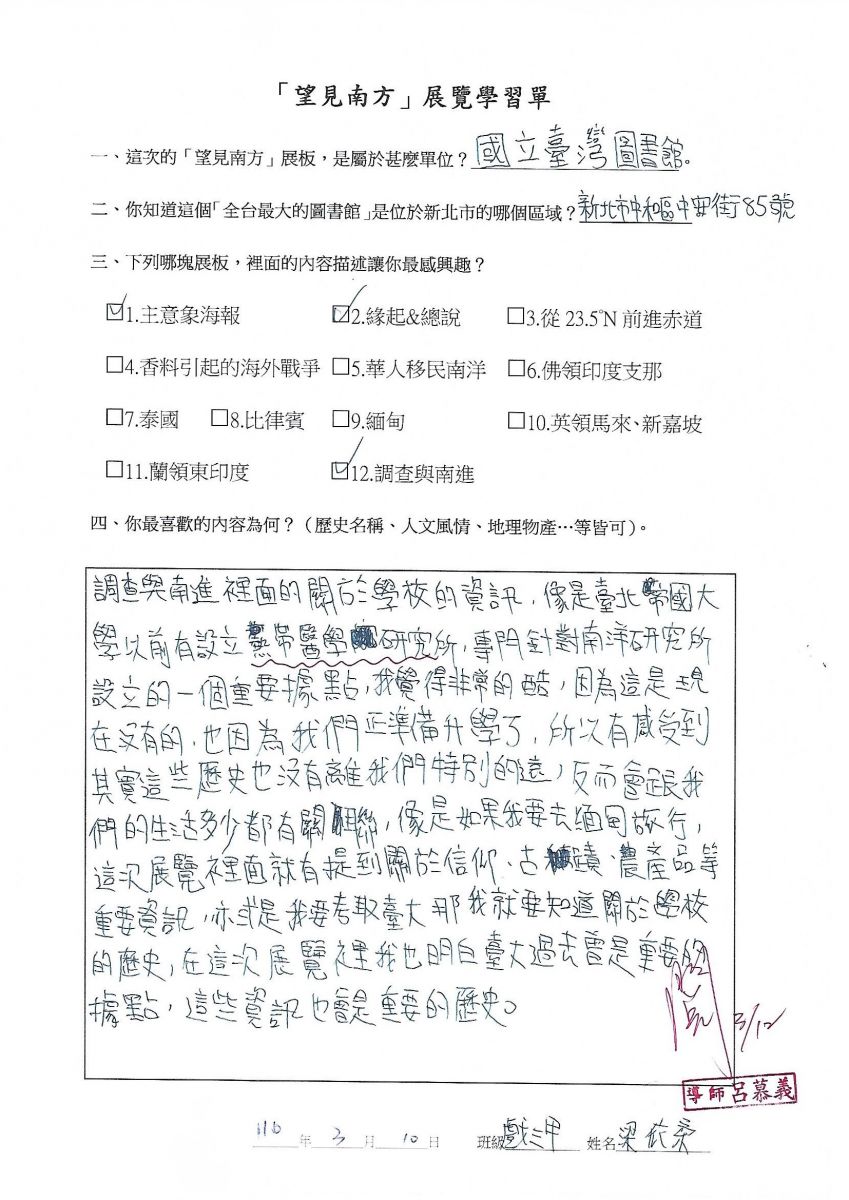 「望見南方」展覽學習單
一、這次的「望見南方」展板，是屬於甚麼單位？國立臺灣圖書館。
二、你知道這個「全台最大的圖書館」是位於新北市的哪個區域？新北市中和區中安街85號
三、下列哪塊展板，裡面的內容描述讓你最感興趣？
☑1.主意象海報 ☑2.緣起&總說 □3.從 23.5°N 前進赤道
□4.香料引起的海外戰爭 □5.華人移民南洋 □6.佛領印度支那
□7.泰國 □8.比律賓 □9.緬甸 □10.英領馬來、新嘉坡
□11.蘭領東印度 ☑12.調查與南進
四、你最喜歡的內容為何？（歷史名稱、人文風情、地理物產…等皆可）。
調查與南進裡面的關於學校的資訊，像是臺北帝國大
學以前有設立熱帶醫學研究所，專門針對南洋研究所
設立的一個重要據點，我覺得非常的酷，因為這是現
在沒有的，也因為我們正準備升學了，所以有感受到
其實這些歷史也沒有離我們特別的遠，反而會跟我
們的生活多少都有關聯，像是如果我要去緬甸旅行，
這次展覽裡面就有提到關於信仰、古蹟、農產品等
重要資訊，亦或是我要考取臺大那我就要知道關於學校
的歷史，在這次展覽裡我也明白臺大過去曾是重要的
據點，這些資訊也會是重要的歷史。
閱
3/12
導師呂慕義
110年3月10日 班級戲三甲 姓名梁依柔